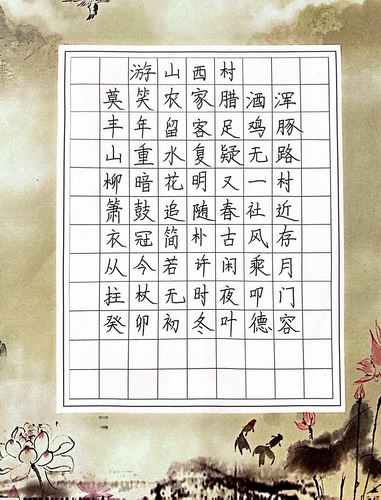 游山西村
莫笑农家腊酒浑
丰年留客足鸡豚
山重水复疑无路
柳暗花明又一村
箫鼓追随春社近
衣冠简朴古风存
从今若许闲乘月
拄杖无时夜叩门
癸卯初冬叶德容